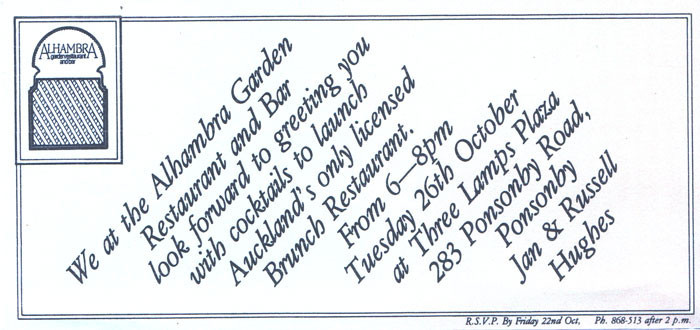 ALHAMBRA
garden restaurant
and bar
We at the Alhambra Garden
Restaurant and Bar
look forward to greeting you
with cocktails to launch
Auckland's only licensed
Brunch Restaurant.
From 6—8pm
Tuesday 26th October
at Three Lamps Plaza
283 Ponsonby Road,
Ponsonby
Jan & Russell
Hughes
R.S.V.P. By Friday 22nd Oct, Ph. 868-513 after 2 p.m.